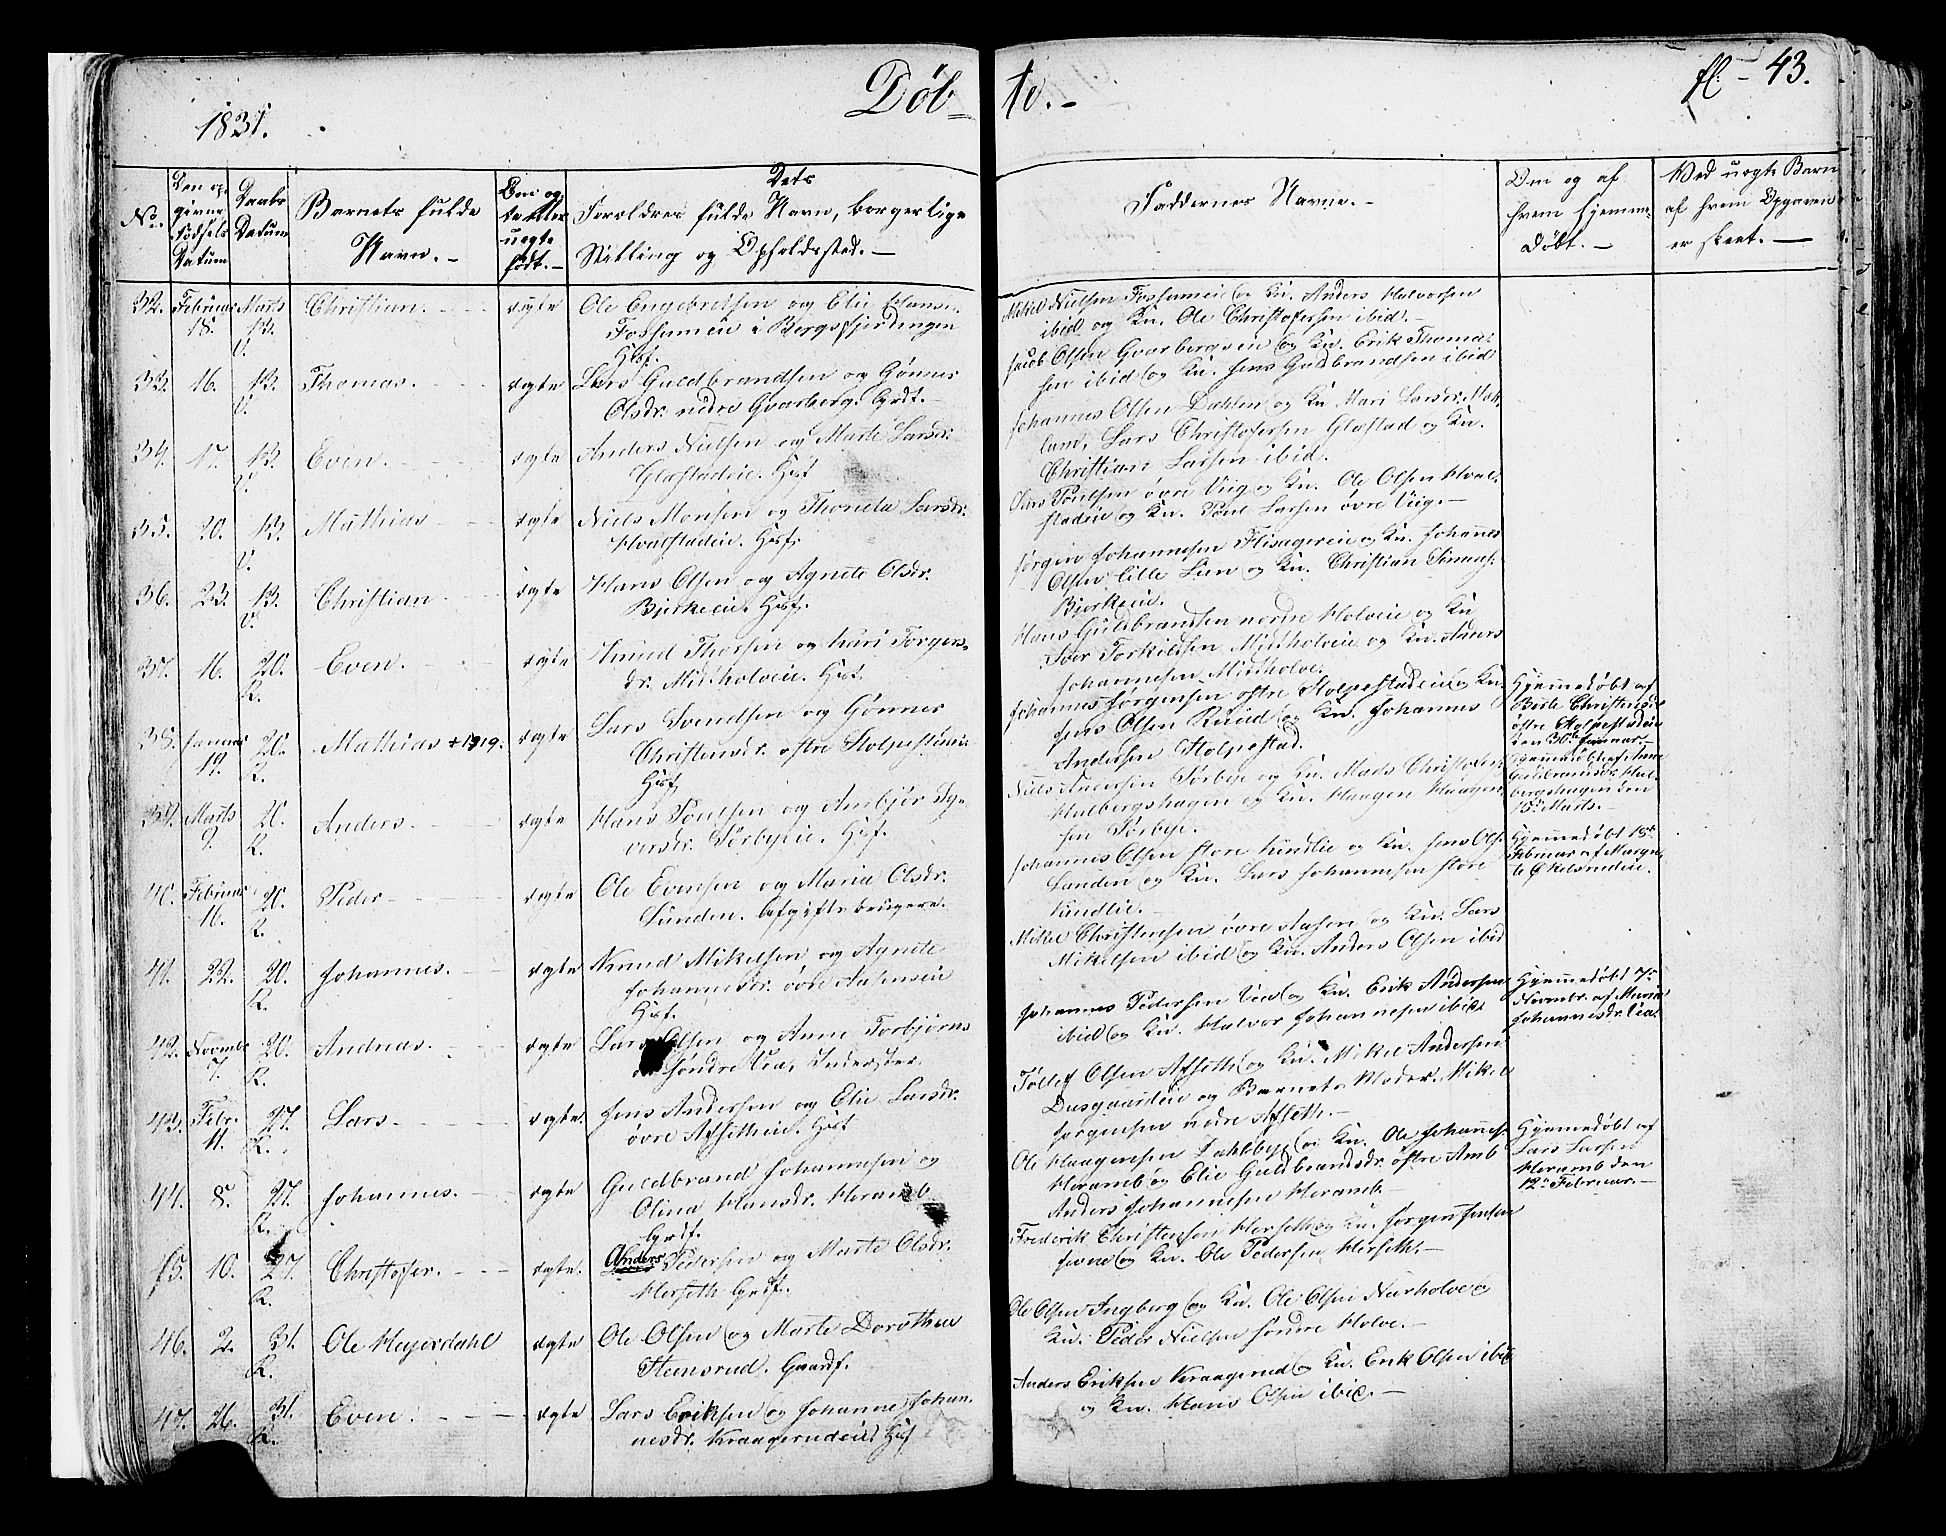 1831.
Døb=
te.-
fl - 43.
No.
Den op-
givne
Fødsels
Datum
Daabs
Datum
Barnets fulde
Navn. -
Om æg-
te eller
uegte
født. -
Dets
Forældres fulde Navn, borgerlige
Stilling og Opholdssted. -
Faddernes Navne. -
Om og af
hvem hjemme-
døbt. -
Ved uegte Barn
af hvem Opgaven
er skeet. -
32. Februar 18. Marts 13. V. Christian. ægte Ole Engebretsen og Elie Hans
Fossumeie i Bergsfjerdingen
Husf.
Mikel Nielsen Fossumeie og Kn. Anders Halvorsen
ibid og Kn. Ole Christofersen ibid. -
33. 16. 13. V. Thomas. ægte Lars Guldbrandsen og Gønner
Olsdr. nedre Gvarberg. Grdf. -
Jacob Olsen Gvarbergseie og Kn. Erik Thomas-
sen ibid og Kn. Jens Guldbrandsen ibid
34. 17. 13. V. Even. ægte Anders Nielsen og Marte Larsdr.
Glæstadeie. Husf
Johannes Olsen Dahlen og Kn. Mari Larsdr.
land, Lars Christofersen Glæstad og Kn.
Christian Larsen ibid.
35. 20. 13. V. Mathias ægte Niels Monsen og Thoneta Larsdr.
Hvalstadeie. Husf.
Lars Poulsen øvre Viig og Kn. Ole Olsen Hval-
stadeie og Kn. Poul Larsen øvre Viig. -
36. 23. 13. V. Christian ægte Hans Olsen og Agnete Olsdr.
Bjerkeeie. Husf.
Jørgen Johannesen Flisagereie og Kn. Johannes
Olsen lille Lien og Kn. Christian Simens.
Bjerkeeie.
37. 16. 20. R. Even. ægte Knud Thorsen og Kari Torgers-
dr. Midtholveie. Husf.
Hans Guldbrandsen nordre Holveie og Kn
Iver Torkildsen Midtholveie og Kn. Anders
Johannesen Midtholve.
38. Januar 19. 20. R. Mathias +1919. ægte Lars Svendsen og Gønner
Christensdr. østre Stolpestadeie
Husf
Johannes Jørgensen østre Stolpestadeie og Kn.
Jens Olsen Ruud og Kn. Johannes
Andersen Stolpestad.
Hjemmedøbt af
Berte Christensdr
østre Stolpestadeie
den 30te Januar. -
39. Marts 9. 20. R. Anders. ægte Hans Poulsen og Anbjør Sy-
versdr. Sørbyeie. Husf.
Niels Andersen Sørbye og Kn. Mads Christofers.
Hulbergshagen og Kn. Haagen Haagen-
sen Sørbye.
Hjemmedøbt af Anne
Guldbrandsdr Hul-
bergshagen den
15de Marts. -
40. Februar 16. 20. R. Peder ægte Ole Evensen og Maria Olsdr.
Sunden. Afgiftsbrugere.
Johannes Olsen store Kindlie og Kn. Jens Ols.
Sunden og Kn. Lars Johannesen store
Kindlie. -
Hjemmedøbt 18de
Februar af Margre-
te Økelsrudeie.
41. 22. 20. R. Johannes. ægte Knud Mikelsen og Agnete
Johannesdr. øvre Aasneie
Husf.
Mikel Christensen øvre Aasene og Kn. Lars
Mikelsen ibid og Kn. Anders Olsen ibid
42. Novembr 7. 20. R. Andreas. ægte Lars Olsen og Anne Torbjørns
dr. søndre Lia, Inderster.
Johannes Pedersen Lia og Kn. Erik Andersen
ibid og Kn. Halvor Johannesen ibid.
Hjemmedøbt 7de
Novembr. af Maria
Johannesdr. Lia.
43. Febr. 11. 27. R. Lars. ægte. Jens Andersen og Elie Larsdr.
øvre Afsetheie. Husf
Tollef Olsen Afseth og Kn. Mikel Andersen
Dusgaardeie og Barnets Moder. Mikel
Jørgensen nedre Afseth. -
44. 8. 27. R. Johannes. ægte Guldbrand Johannesen og
Olina Hansdr. Heramb
Grdf.
Ole Haagensen Dahlbye og Kn. Ole Johannes.
Heramb og Elie Guldbrandsdr. østre Amb
Anders Johannesen Heramb. -
Hjemmedøbt af
Lars Larsen
Heramb den
12te Februar. -
45. 10. 27. R. Christofer. ægte. Anders Pedersen og Marte Olsdr.
Herseth Grdf.
Frederik Christensen Herseth og Kn. Jørgen Jensen
Juvne og Kn. Ole Pedersen Herseth. -
46. 2. 31. R. Ole Heyerdahl ægte Ole Olsen og Marte Dorothea
Steensrud. Gaardf.
Ole Olsen Ingberg og Kn. Ole Olsen Nærholve og
Kn. Peder Nielsen søndre Holve. -
47. 26. 31. R. Even. ægte Lars Eriksen og Johanne Johan-
nesdr. Kraagerudeie. Husf
Anders Eriksen Kraagerud og Kn. Erik Olsen ibid
og Kn. Hans Olsen ibid. -